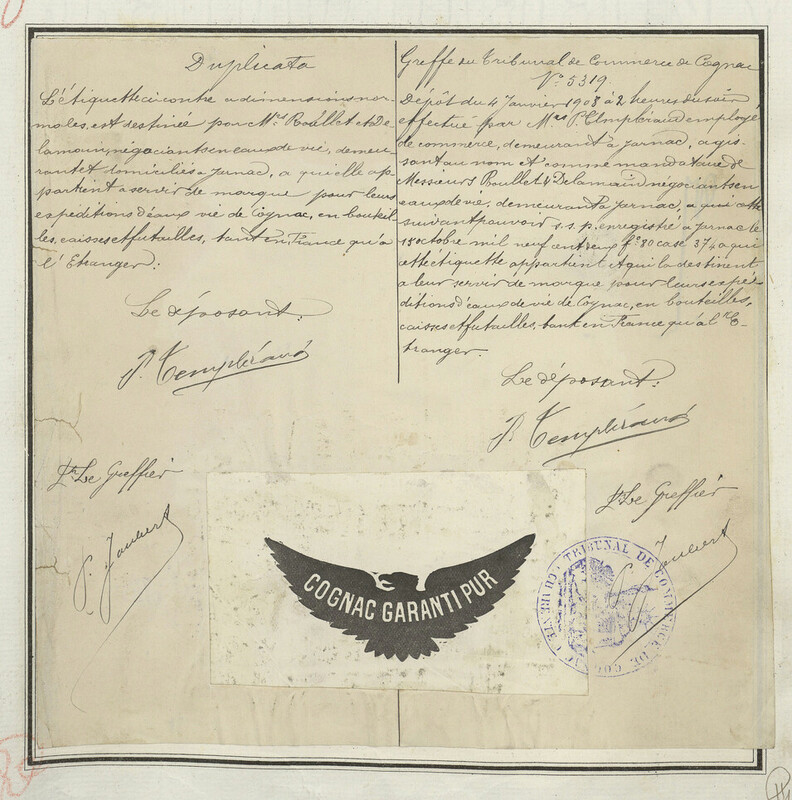 Duplicata
L'étiquette ci contre a dimensions nor-
males, est destinée par Mrs Roullet et De
lamain, négociants en eaux de vie, demeu
rant et domiciliés a Jarnac, a qui elle ap-
partient a servir de marque pour leurs
expéditions d'eaux vie de Cognac, en bouteil
les, caisses et futailles, tant en France qu'a
l'Etranger:
Le déposant:
P. Templéraud
Pr Le Greffier
P. Joubert
Greffe du Tribunal de Commerce de Cognac
No 5319.
Dépôt du 4 Janvier 1908 à 2 heures du soir
effectué par Mr P. Templéraud employé
de commerce, demeurant à Jarnac, agis-
sant au nom et comme mandataire de
Messieurs Roullet & Delamain négociants en
eaux de vie, demeurant à Jarnac,
suivant pouvoir s.s.p. enregistré a Jarnac le
15 octobre mil neuf cent deux fo 80 case 374 a qui
cette étiquette appartient et qui la destinent
a leur servir de marque pour leurs expé-
ditions d'eaux de vie de Cognac, en bouteilles,
caisses et futailles, tant en France qu'a l'E-
tranger.
Le déposant:
P. Templéraud
Pr Le Greffier
P. Joubert
COGNAC GARANTI PUR
TRIBUNAL DE COMMERCE DE COGNAC